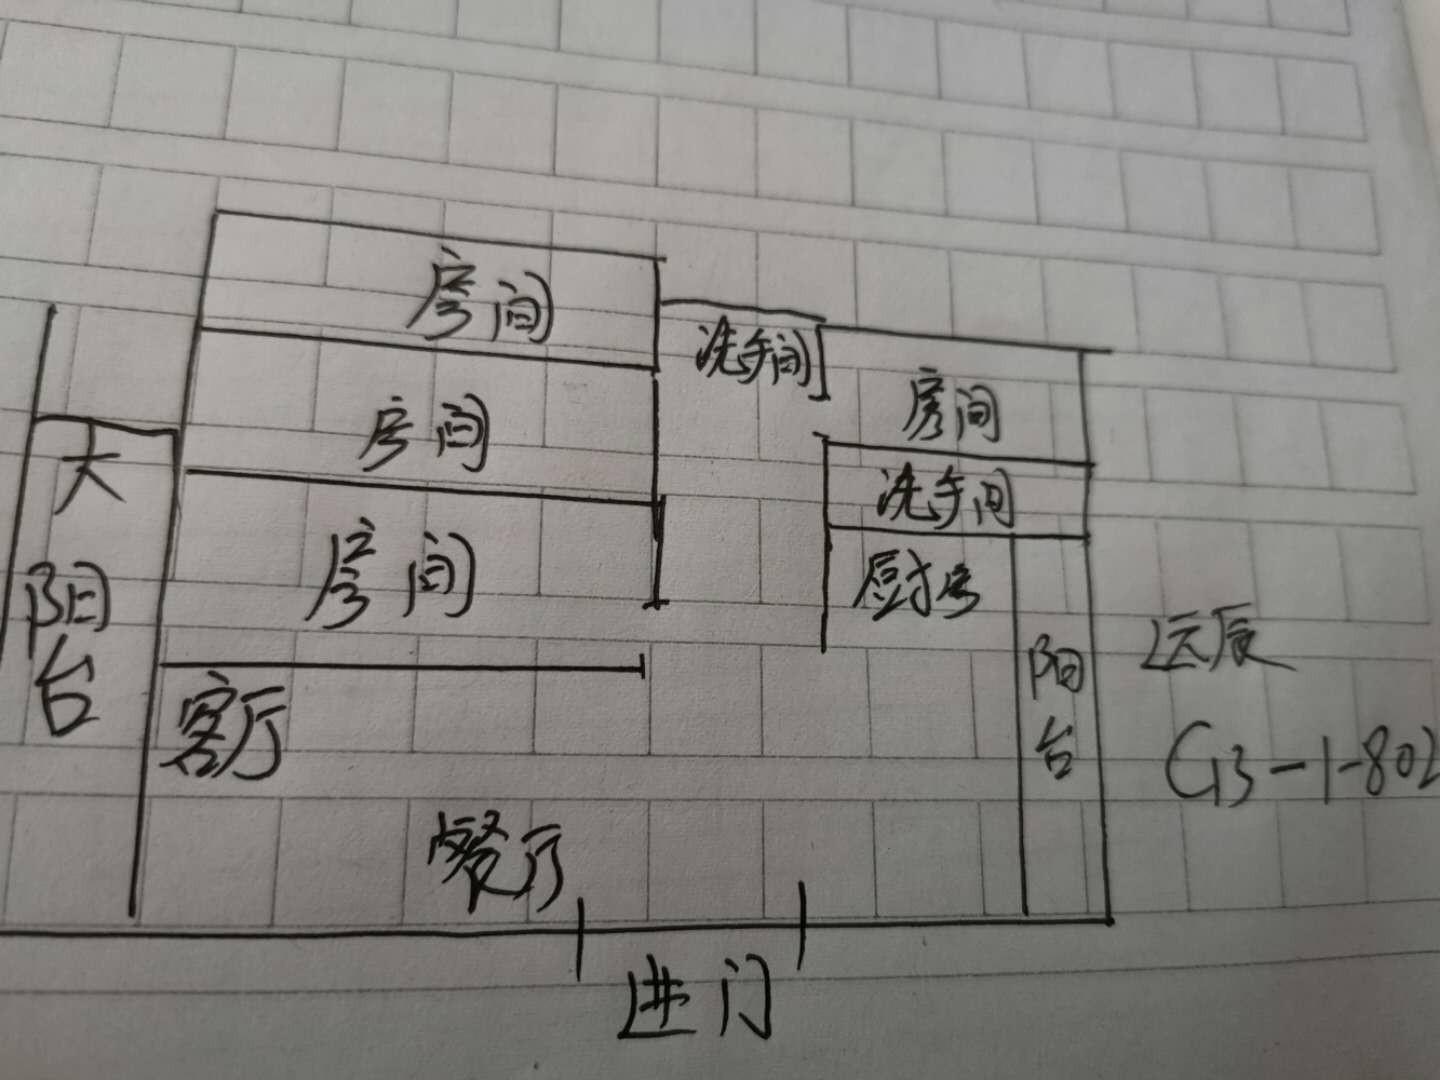 房间
洗手间
房间
房间
大
阳
台
洗手间
房间
厨房
阳
台
远辰
C13-1-802
客厅
餐厅
进门